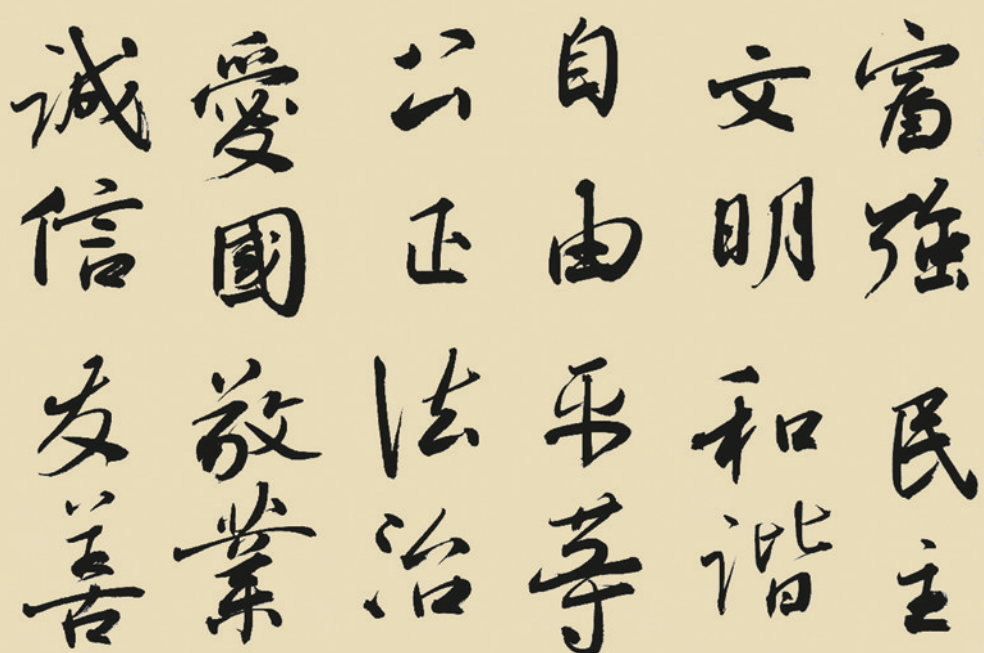 富強民主
文明和谐
自由平等
公正法治
愛國敬業
誠信友善